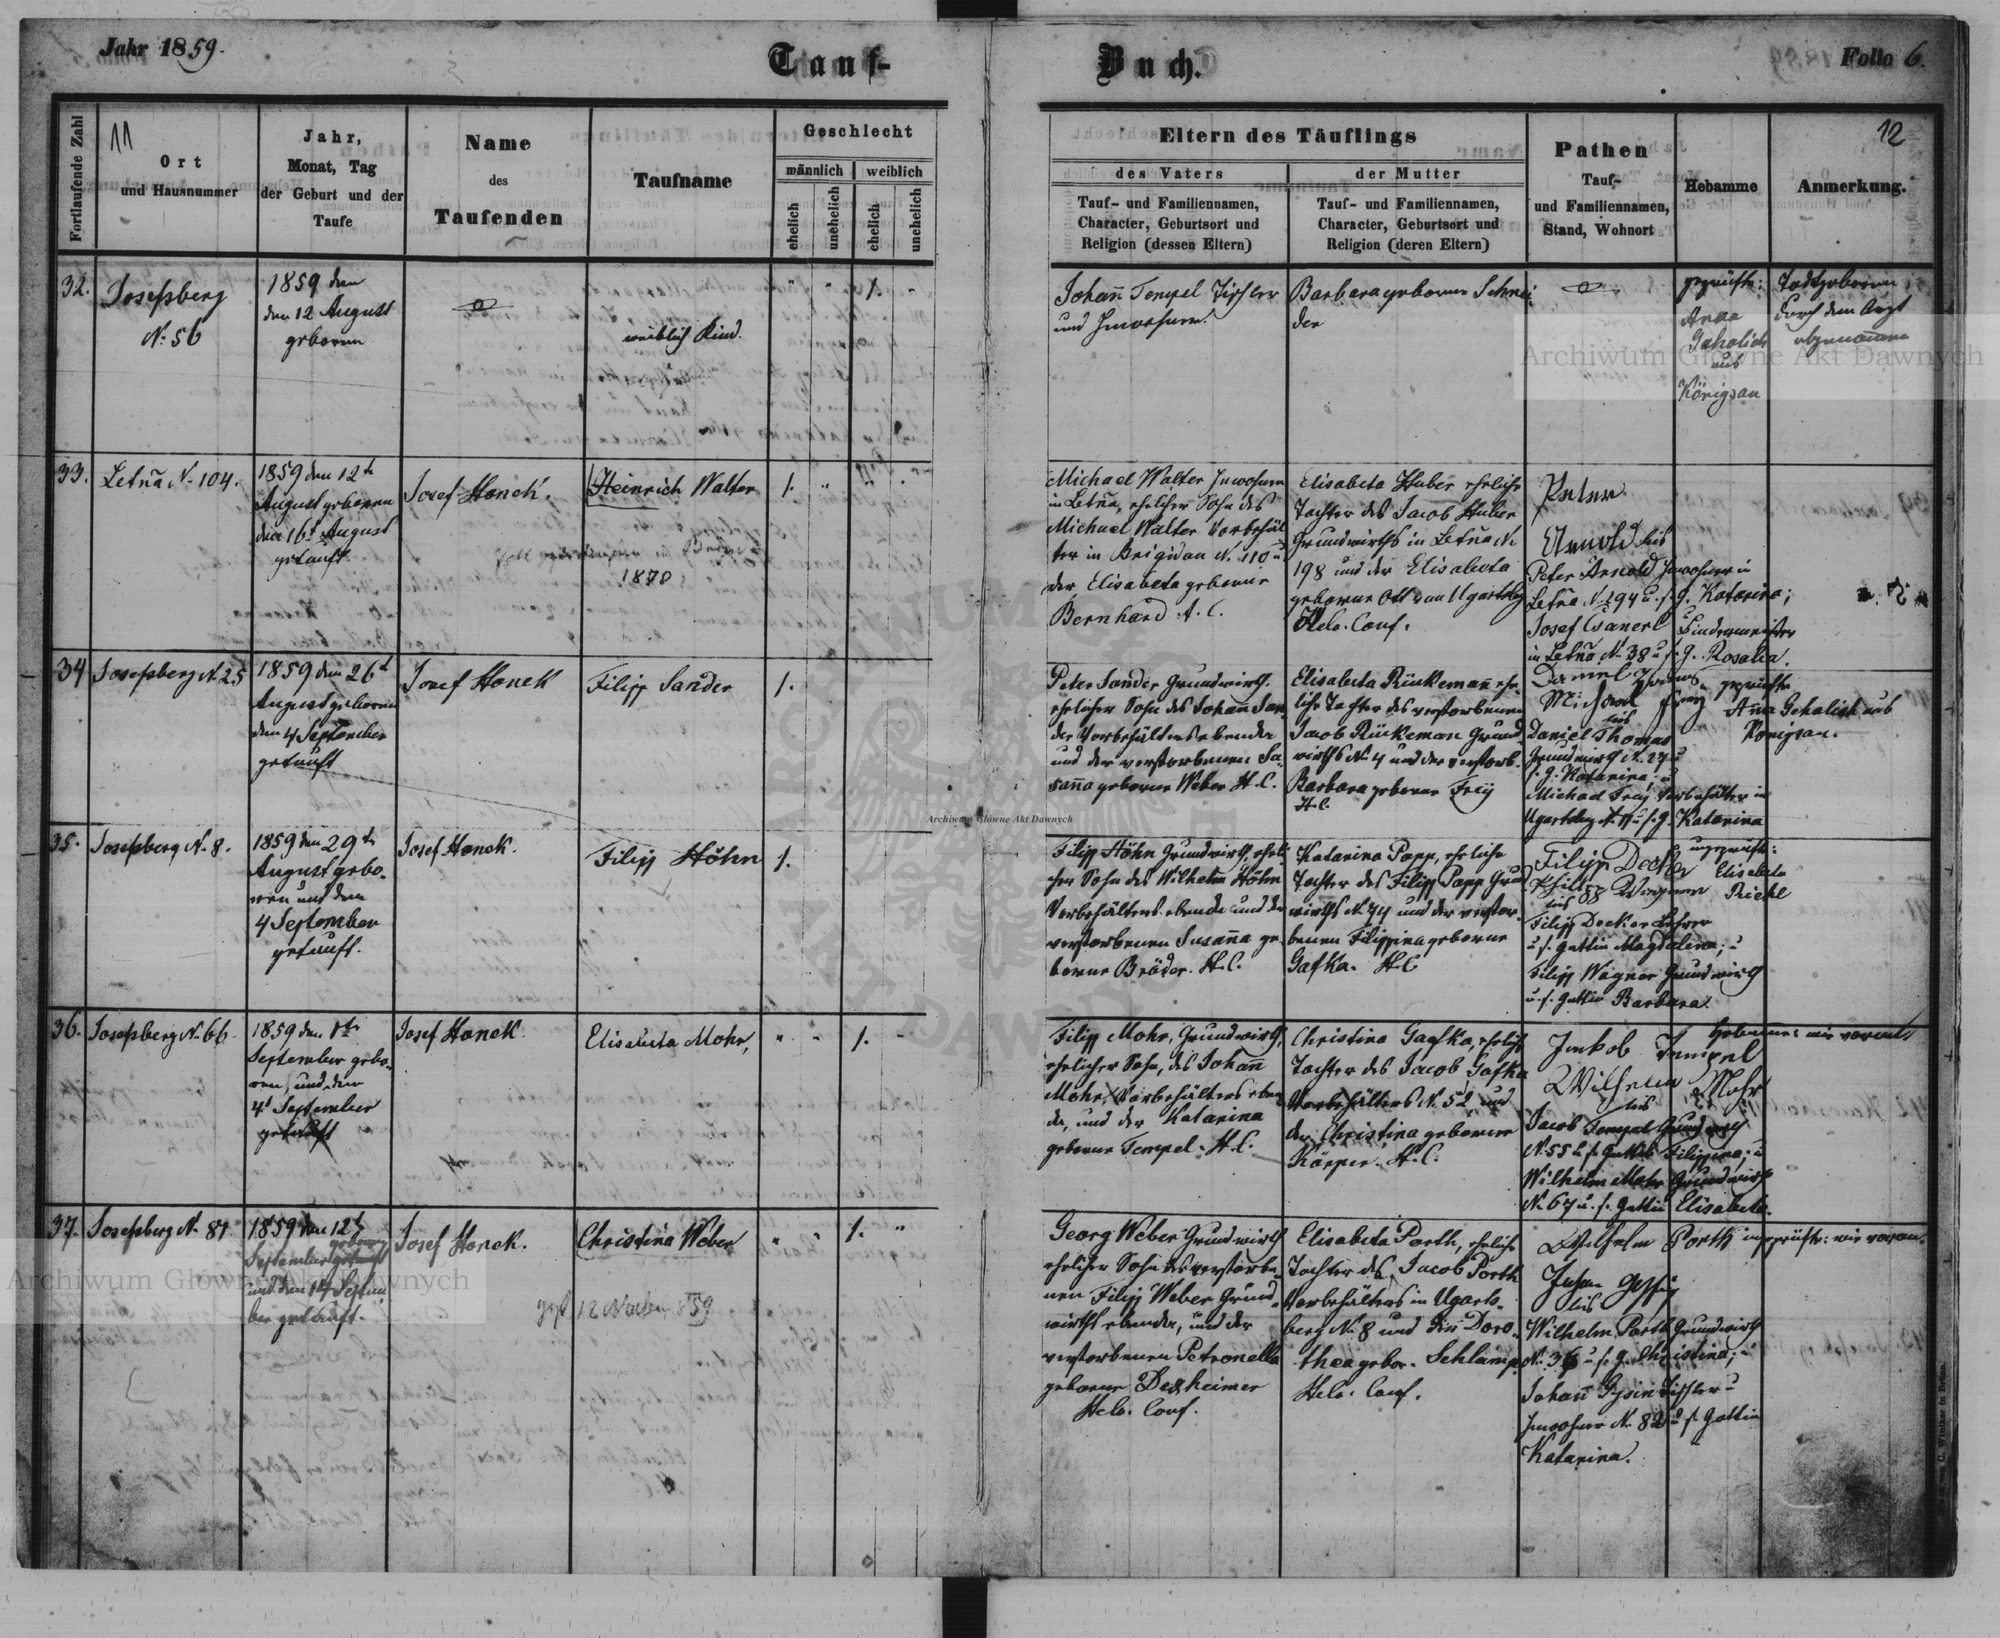 Jahr 1859.
Tauf-
Buch.
Folio 6.
11
12
Fortlaufende Zahl
Ort
und Hausnummer
Jahr,
Monat, Tag
der Geburt und der
Taufe
Name
des
Taufenden
Taufname
Geschlecht
männlich
weiblich
ehelich
unehelich
ehelich
unehelich
Eltern des Täuflings
des Vaters
Tauf- und Familiennamen,
Character, Geburtsort und
Religion (dessen Eltern)
der Mutter
Tauf- und Familiennamen,
Character, Geburtsort und
Religion (deren Eltern)
Pathen
Tauf-
und Familiennamen,
Stand, Wohnort
Hebamme
Anmerkung.
32.
Josefsberg
N. 56
1859 den
den 12 August
geboren
weiblich Kind.
1.
Johann Tempel Tischler
und Inwohner.
Barbara geborene Schnei-
der
geprüfte:
Anna
Gehalich
aus
Königsau
Todtgeboren
durch den Arzt
abgenommen
33.
Letnia N. 104.
1859 den 12t
August geboren
den 16t August
getauft.
Josef Honek.
Heinrich Walter
1870
1.
Michael Walter Inwohner
in Letnia, ehelicher Sohn des
Michael Walter Vorbehäl-
ter in Brigidau N. 110 u
der Elisabeta geborene
Bernhard A. C.
Elisabeta Huber eheliche
Tochter des Jacob Huber
Grundwirths in Letnia N.
198 und der Elisabeta
geborene Ott von Ugartsbg
Helv. Conf.
Peter
Arnold
Peter Arnold Inwohner in
Letnia N. 194 u. s. G. Katarina;
Josef
in Letnia N. 38 u. s. G. Rosalia.
34
Josefsberg N. 25
1859 den 26t
August geboren
den 4 September
getauft
Josef Honek
Filipp Sander
1.
Peter Sander Grundwirth.
ehelicher Sohn des Johann San-
der Vorbehälters ebenda
und der verstorbenen Su-
sanna geborene Weber H. C.
Elisabeta Rinkemann ehe-
liche Tochter des verstorbenen
Jacob Rinkeman Grund-
wirths N. 4 und der verstorb.
Barbara geborene Frey
H. C.
Daniel Thomas
Michael Frey
Daniel Thomas
Grundwirth N. 27 u
s. G. Katarina; u
Michael Frey Vorbehälter in
Ugartsbg N. 11 u. s. G. Katarina
geprüfte
Anna Gehalich aus
Königsau.
35.
Josefsberg N. 8.
1859 den 29t
August gebo-
ren und den
4 September
getauft.
Josef Honek.
Filipp Höhn
1.
Filipp Höhn Grundwirth, eheli-
cher Sohn des Wilhelm Höhn
Vorbehälters ebenda und der
verstorbenen Susanna ge-
borene Bräder. H. C.
Katarina Popp, eheliche
Tochter des Filipp Popp Grund-
wirths N. 74 und der verstor-
benen Filippina geborene
Gafka. H. C
Filipp Decker
Philipp Wagner
Filipp Decker Lehrer
u. s. Gattin Magdalena; u
Filipp Wagner Grundwirth
u. s. Gattin Barbara.
ungeprüft:
Elisabeta
Riehl
36.
Josefsberg N. 66
1859 den 1t
September gebo-
ren, und den
4t September
getauft
Josef Honek.
Elisabeta Mohr,
1.
Filipp Mohr, Grundwirth,
ehelicher Sohn, des Johann
Mohr, Vorbehälters eben-
da, und der Katarina
geborene Tempel. H. C.
Christina Gafka, eheliche
Tochter des Jacob Gafka
Vorbehälters N. 52 und
der Christina geborene
Körper. H. C.
Jakob Tempel
Wilhelm Mohr
Jacob Tempel Grundwirth
N. 55 u. s. Gattin Filippina; u
Wilhelm Mohr Grundwirth
N. 67 u. s. Gattin Elisabeta.
Hebamme: wie voran.
37.
Josefsberg N. 87
1859 den 12t
September geboren
und den 14 Septem-
ber getauft.
Josef Honek.
Christina Weber
12 1859
1.
Georg Weber Grundwirth
ehelicher Sohn des verstorbe-
nen Filipp Weber Grund-
wirths ebenda, und der
verstorbenen Petronella
geborene Dexheimer
Helv. Conf.
Elisabeta Porth, eheliche
Tochter des Jacob Porth
Vorbehälters in Ugarts-
berg N. 8 und der Doro-
thea gebor. Schlamp.
Helv. Conf.
Wilhelm Porth
Wilhelm Porth Grundwirth
N. 36 u. s. G. Christina; u
Johann Gysin Tischler u
Inwohner N. 82 u s. Gattin
Katarina.
ungeprüfte: wie voran.
Archiwum Główne Akt Dawnych
Archiwum Główne Akt Dawnych
Archiwum Główne Akt Dawnych